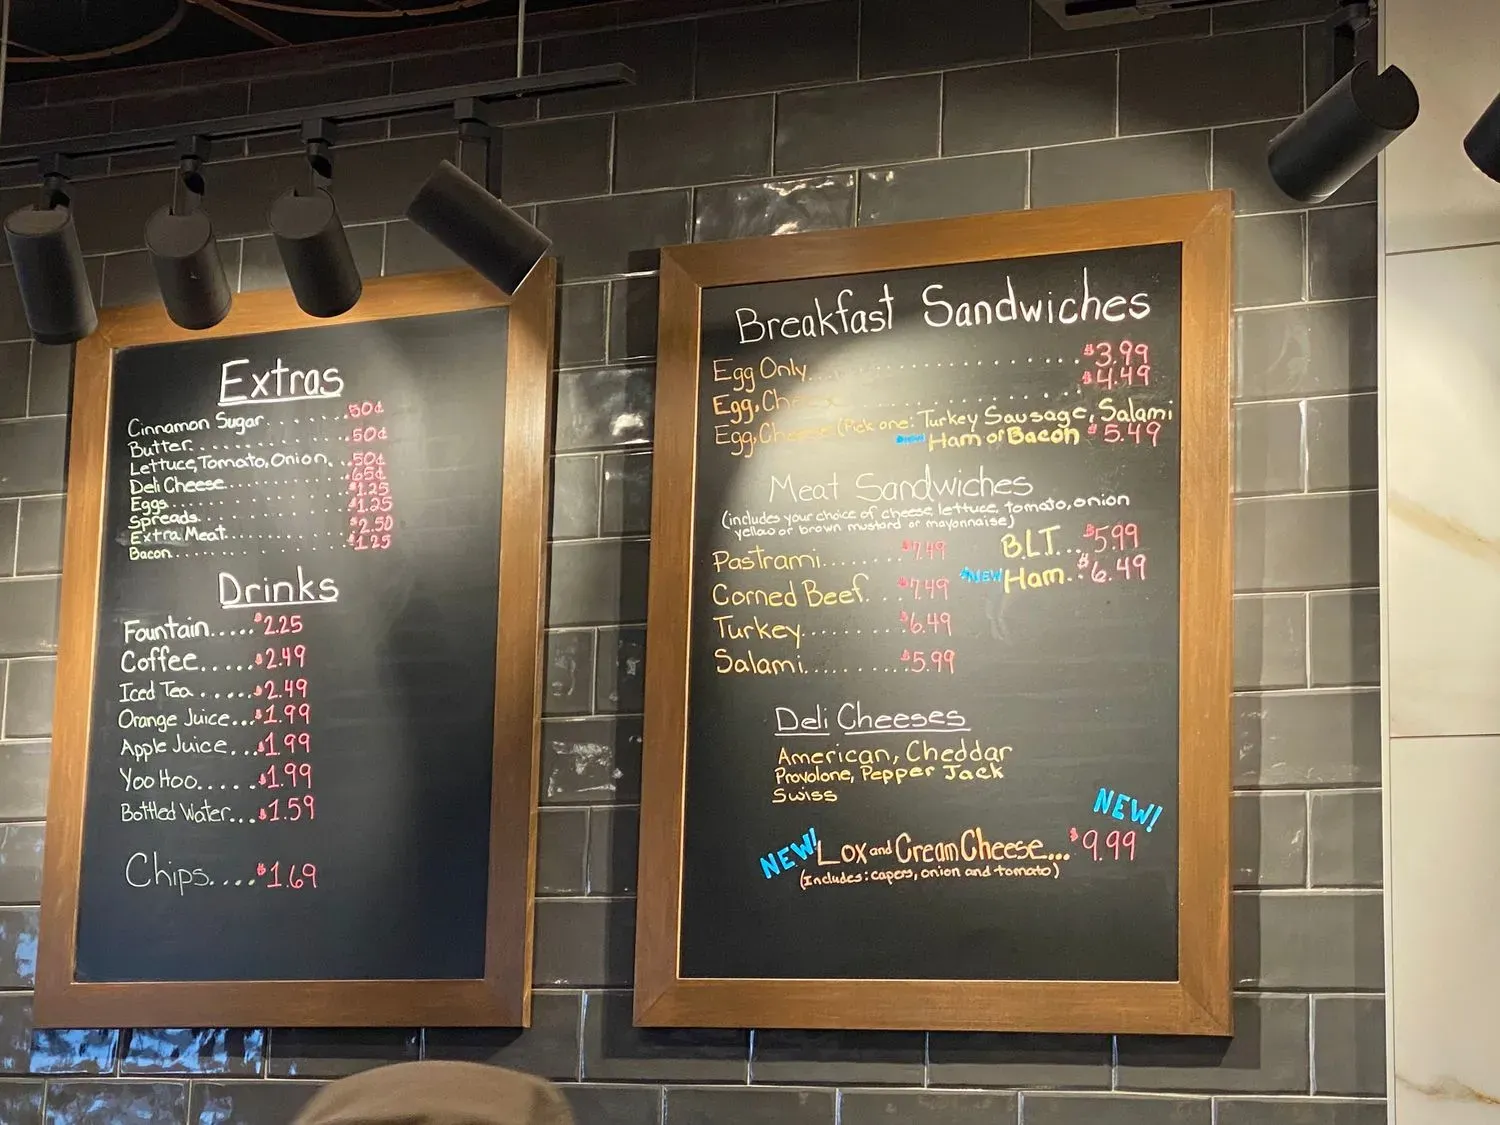 Extras
Cinnamon Sugar.......50¢
Butter..........50¢
Lettuce, Tomato, Onion...50¢
Deli Cheese..........65¢
Eggs..........$1.25
Spreads..........$1.25
Extra Meat..........$2.50
Bacon..........$1.25
Drinks
Fountain.....$2.25
Coffee.....$2.49
Iced Tea......$2.49
Orange Juice...$1.99
Apple Juice...$1.99
Yoo Hoo.....$1.99
Bottled Water...$1.59
Chips....$1.69
Breakfast Sandwiches
Egg Only..........$3.99
Egg, Cheese..........$4.49
Egg, Cheese (Pick one: Turkey Sausage, Salami
new Ham or Bacon $5.49
Meat Sandwiches
(includes your choice of cheese, lettuce, tomato, onion
yellow or brown mustard or mayonnaise)
Pastrami.......$7.49
Corned Beef...$7.49
Turkey........$6.49
Salami.........$5.99
B.L.T...$5.99
NEW Ham..$6.49
Deli Cheeses
American, Cheddar
Provolone, Pepper Jack
Swiss
NEW!
NEW! Lox and Cream Cheese...$9.99
(Includes: capers, onion and tomato)